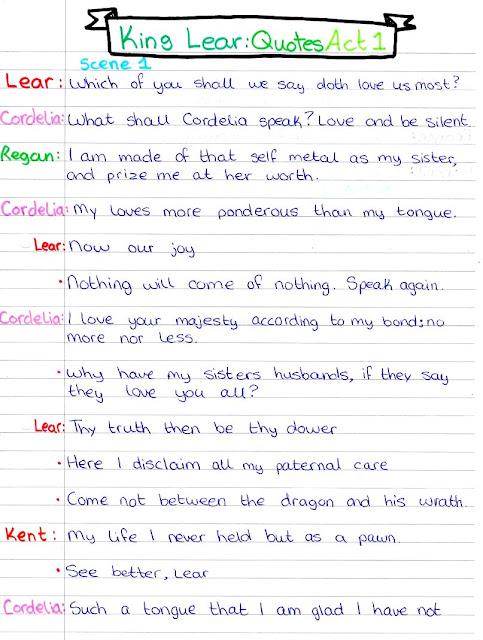 King Lear: Quotes Act 1
Scene 1
Lear: Which of you shall we say doth love us most?
Cordelia: What shall Cordelia speak? Love and be silent.
Regan: I am made of that self metal as my sister,
and prize me at her worth.
Cordelia: My loves more ponderous than my tongue.
Lear: Now our joy
• Nothing will come of nothing. Speak again.
Cordelia: I love your majesty according to my bond; no
more nor less.
• Why have my sisters husbands, if they say
they love you all?
Lear: Thy truth then be thy dower
• Here I disclaim all my paternal care
• Come not between the dragon and his wrath.
Kent: My life I never held but as a pawn.
• See better, Lear
Cordelia: Such a tongue that I am glad I have not